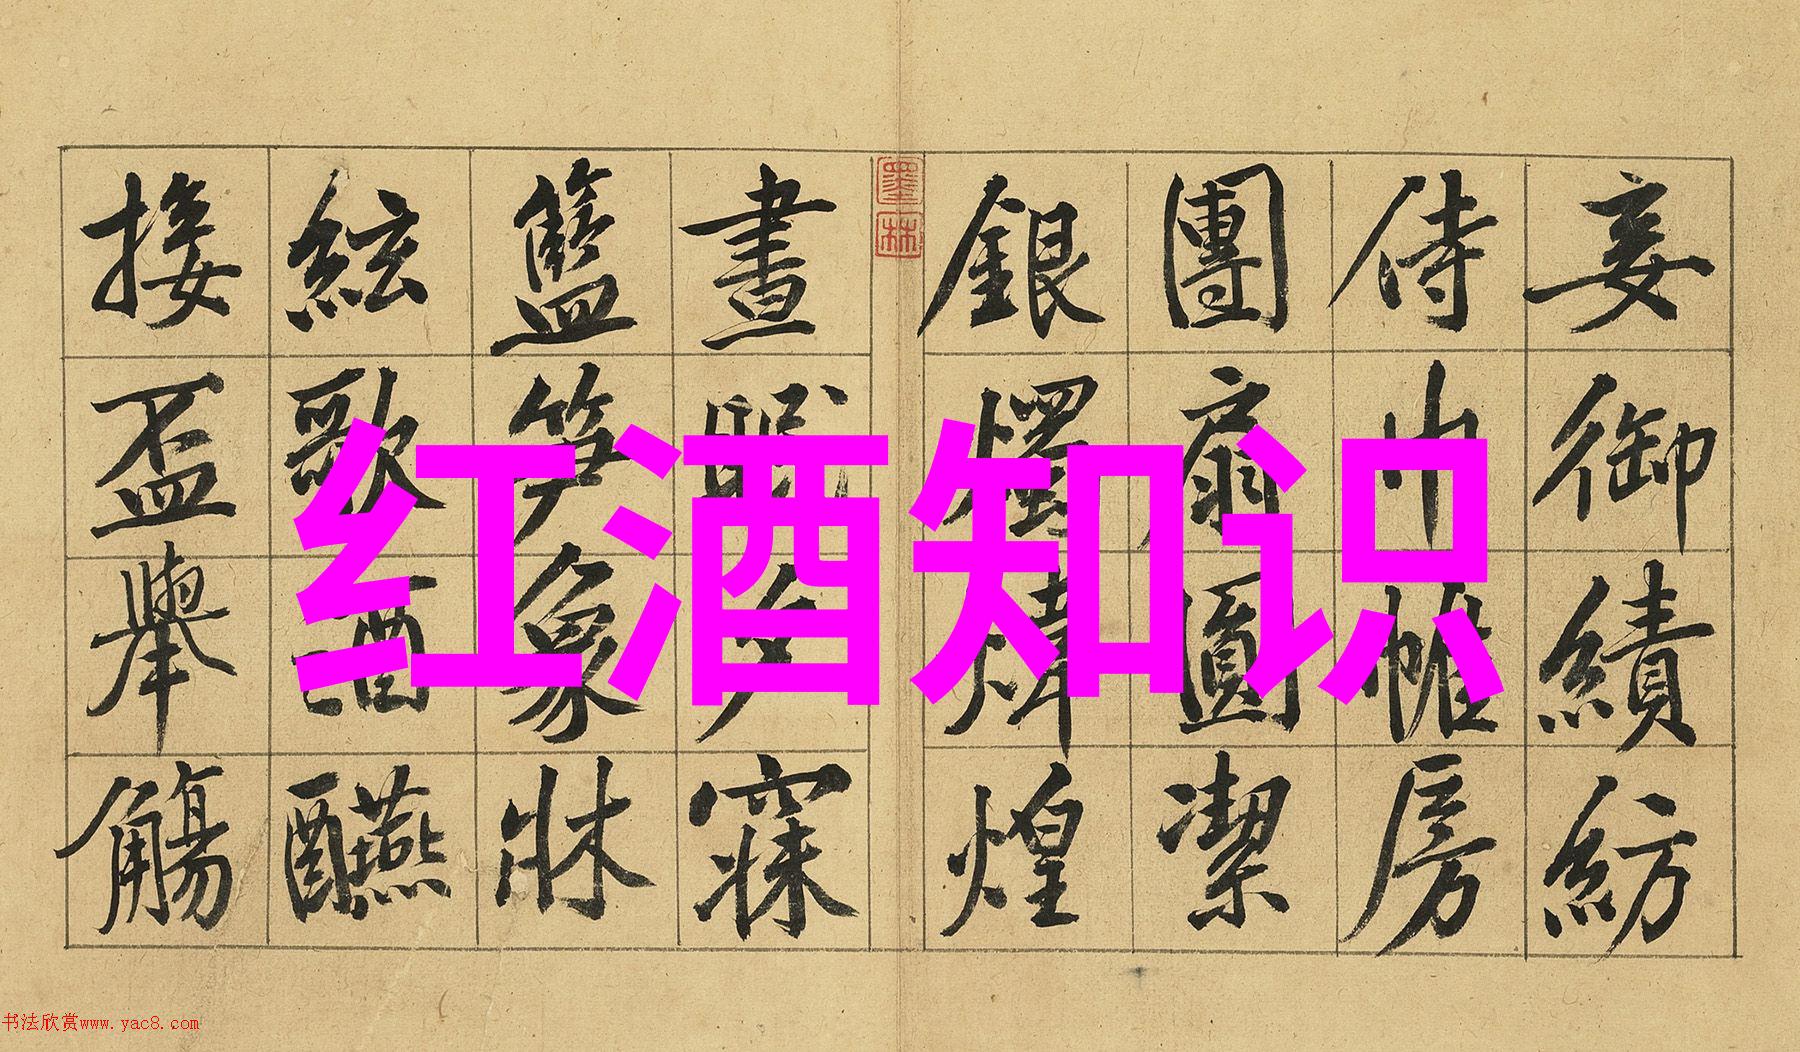 妾御績紡
侍巾帷房
團扇圓潔
銀燭煒煌
墨林
晝眠夕寐
籃笋象牀
絃歌酒醼
接盃舉觴
红酒知识
书法欣赏www.yac8.com